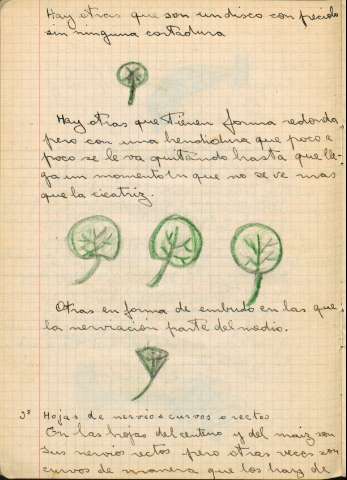 Hay otras que son un disco con peciolo
sin ninguna cortadura
Hay otras que tienen forma redonda,
pero con una hendidura que poco a
poco se le va quitando hasta que lle-
ga un momento en que no se ve mas
que la cicatriz.
Otras en forma de embudo en las que
la nerviacion parte del medio.
3º Hojas de nervios curvos o rectos
En las hojas del centeno y del maiz son
sus nervios rectos pero otras veces son
curvos de manera que los haz de